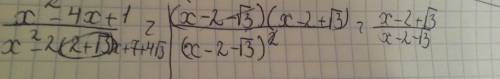 x² - 4x + 1 / x² - 2(2+√3)x + 7 + 4√3 = (x - 2 - √3)(x - 2 + √3) / (x - 2 - √3)² = x - 2 + √3 / x - 2 - √3